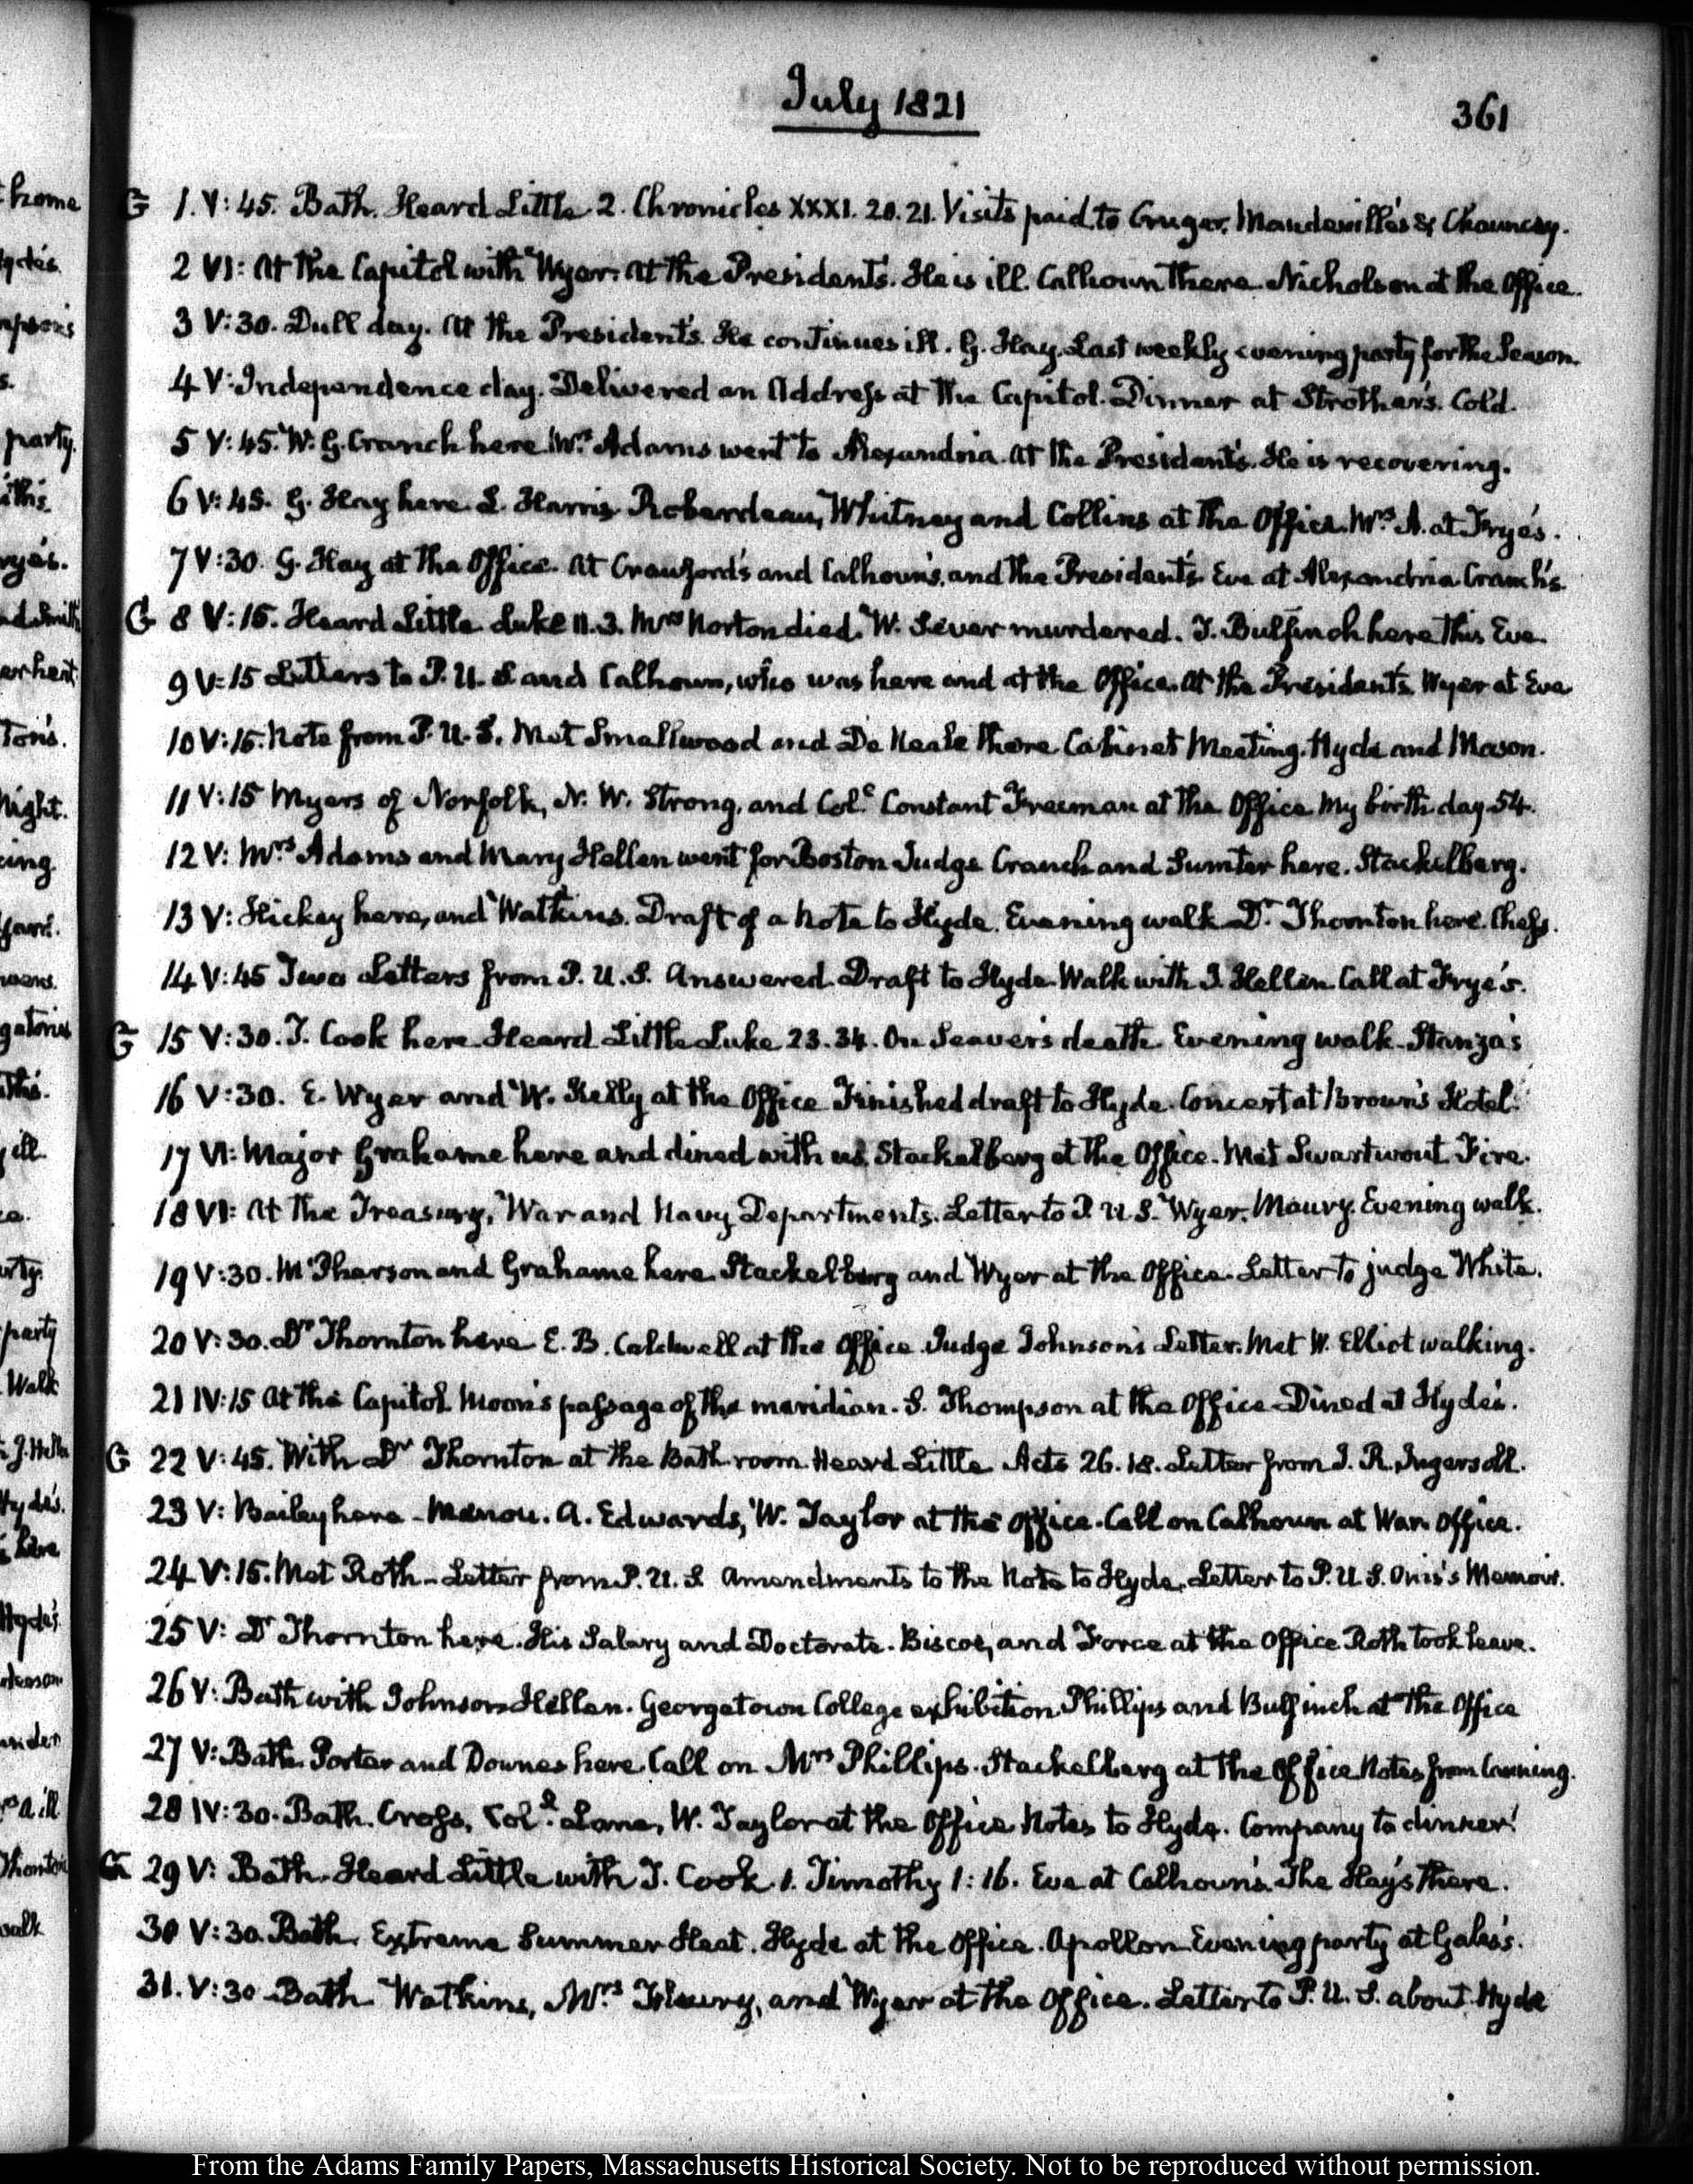 July 1821
361
G 1. V: 45. Bath. Heard Little. 2. Chronicles XXXI. 20. 21. Visits paid to Cruger, Mandeville's & Chauncey.
2 VI: At the Capitol with Wyer. At the President's. He is ill. Calhoun there. Nicholson at the Office.
3 V:30. Dull day. At the President's. He continues ill. G. Hay. Last weekly evening party for the Season.
4 V: Independence day. Delivered an Address at the Capitol. Dinner at Strother's. Cold.
5 V:45. W. G. Cranch here. Mrs Adams went to Alexandria. At the President's. He is recovering.
6 V:45. G. Hay here. L. Harris. Roberdeau, Whitney and Collins at the Office. Mrs A. at Frye's.
7 V:30. G. Hay at the Office. At Crawford's and Calhoun's, and the President's. Eve at Alexandria Cranch's.
G 8 V:15. Heard Little. Luke 11. 3. Mrs Norton died. W. Sever murdered. T. Bulfinch here this Eve.
9 V:15 Letters to P. U. S. and Calhoun, who was here and at the Office. At the President's. Wyer at Eve
10 V:15. Note from P. U. S. Met Smallwood and De Neale there. Cabinet Meeting. Hyde and Mason.
11 V:15 Myers of Norfolk, N. W. Strong, and Col.l Constant Freeman at the Office. My birth day 54.
12 V: Mrs Adams and Mary Hellen went for Boston. Judge Cranch and Sumter here. Stackelberg.
13 V: Hickey here, and Watkins. Draft of a Note to Hyde. Evening walk. Dr Thornton here. Chess.
14 V:45 Two Letters from P. U. S. Answered. Draft to Hyde. Walk with J. Hellen. Call at Frye's.
G 15 V:30. T. Cook here. Heard Little. Luke 23. 34. On Seaver's death. Evening walk. Stanza's
16 V:30. E. Wyer and W. Kelly at the Office. Finished draft to Hyde. Concert at Brown's Hotel.
17 VI: Major Grahame here and dined with us. Stackelberg at the Office. Met Swartwout. Fire.
18 VI: At the Treasury, War and Navy Departments. Letter to P. U. S. Wyer. Maury. Evening walk.
19 V:30. McPherson and Grahame here. Stackelberg and Wyer at the Office. Letter to judge White.
20 V:30. Dr Thornton here. E. B. Caldwell at the Office. Judge Johnson's Letter. Met W. Elliot walking.
21 IV:15 At the Capitol. Moon's passage of the meridian. S. Thompson at the Office. Dined at Hyde's.
G 22 V:45. With Dr Thornton at the Bath room. Heard Little Acts 26. 18. Letter from J. R. Ingersoll.
23 V: Bailey here. Menou. A. Edwards, W. Taylor at the Office. Call on Calhoun at War Office.
24 V:15. Met Roth. Letter from P. U. S. Amendments to the Note to Hyde. Letter to P. U. S. Onis's Memoir.
25 V: Dr Thornton here. His Salary and Doctorate. Biscoe, and Force at the Office. Roth took leave.
26 V: Bath with Johnson Hellen. Georgetown College exhibition. Phillips and Bulfinch at the Office
27 V: Bath. Porter and Downes here. Call on Mrs Phillips. Stackelberg at the Office. Notes from Canning.
28 IV:30. Bath. Cross, Col.l Lane, W. Taylor at the Office. Notes to Hyde. Company to dinner.
G 29 V: Bath. Heard Little with T. Cook. 1. Timothy 1:16. Eve at Calhoun's. The Hay's there.
30 V:30. Bath. Extreme Summer Heat. Hyde at the Office. Apollon. Evening party at Gales's.
31. V:30 Bath. Watkins, Mrs and Wyer at the Office. Letter to P. U. S. about Hyde
From the Adams Family Papers, Massachusetts Historical Society. Not to be reproduced without permission.